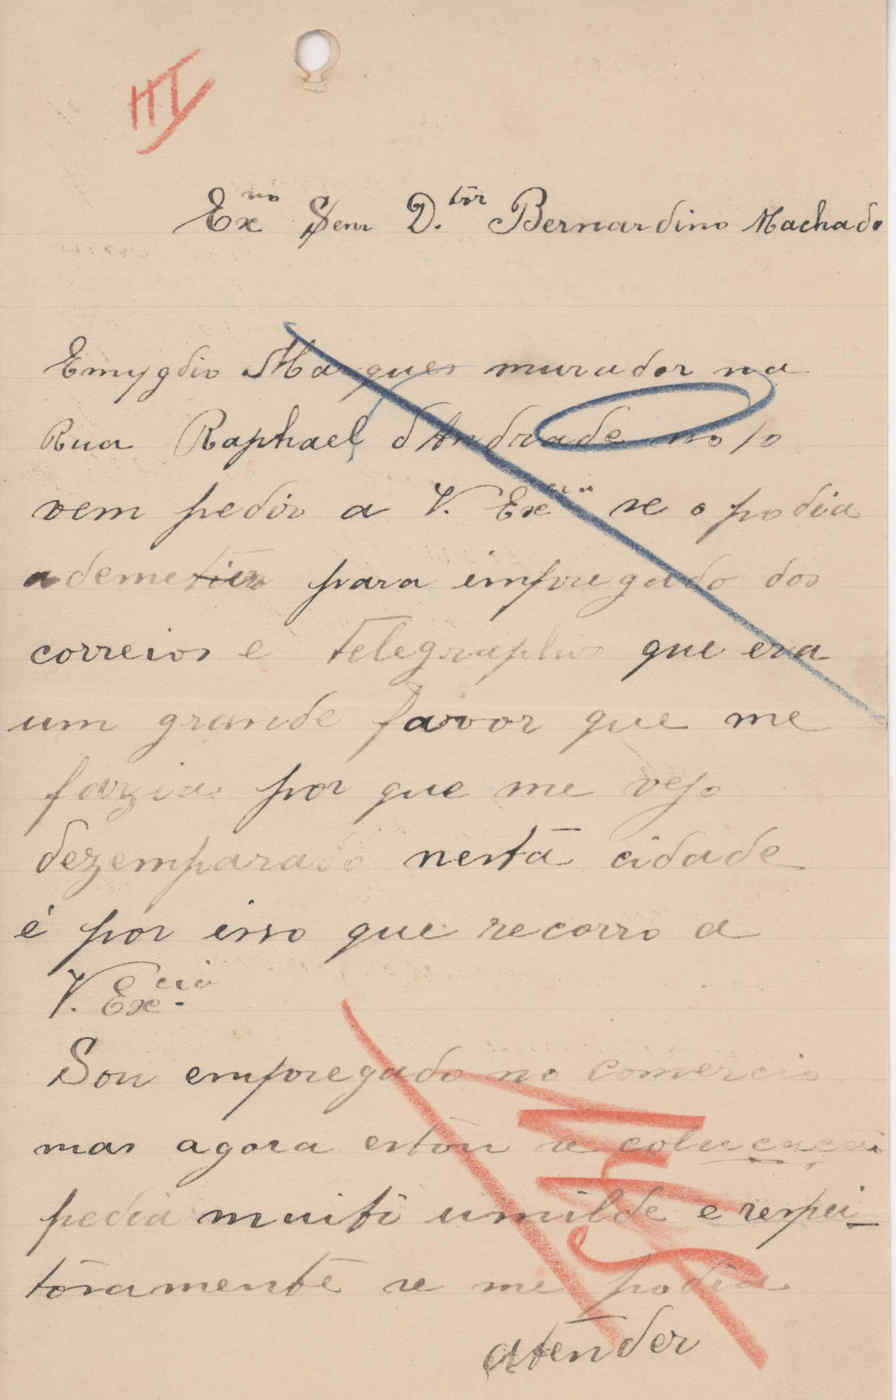 III
Exmo Senr D.tor Bernardino Machado
Emygdio Marques murador na
Rua Raphael d'Andrade no 10
vem pedir a V. Excia se o podia
ademetir para impregado dos
correios e Telegraphos que era
um grande favor que me
fazia por que me vejo
dezemparado nesta cidade
é por isso que recorro a
V. Excia.
Sou empregado no comercio
mas agora estou se colucação
pedia muito umilde e respei-
tosamente se me podia
atender